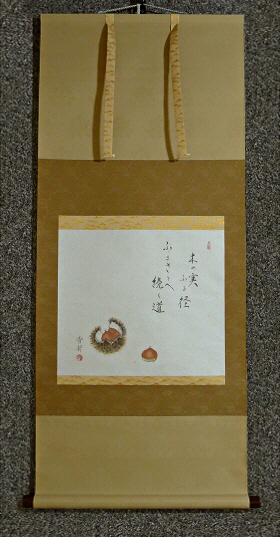 木の実
ふる径
ふるさとへ
続く道